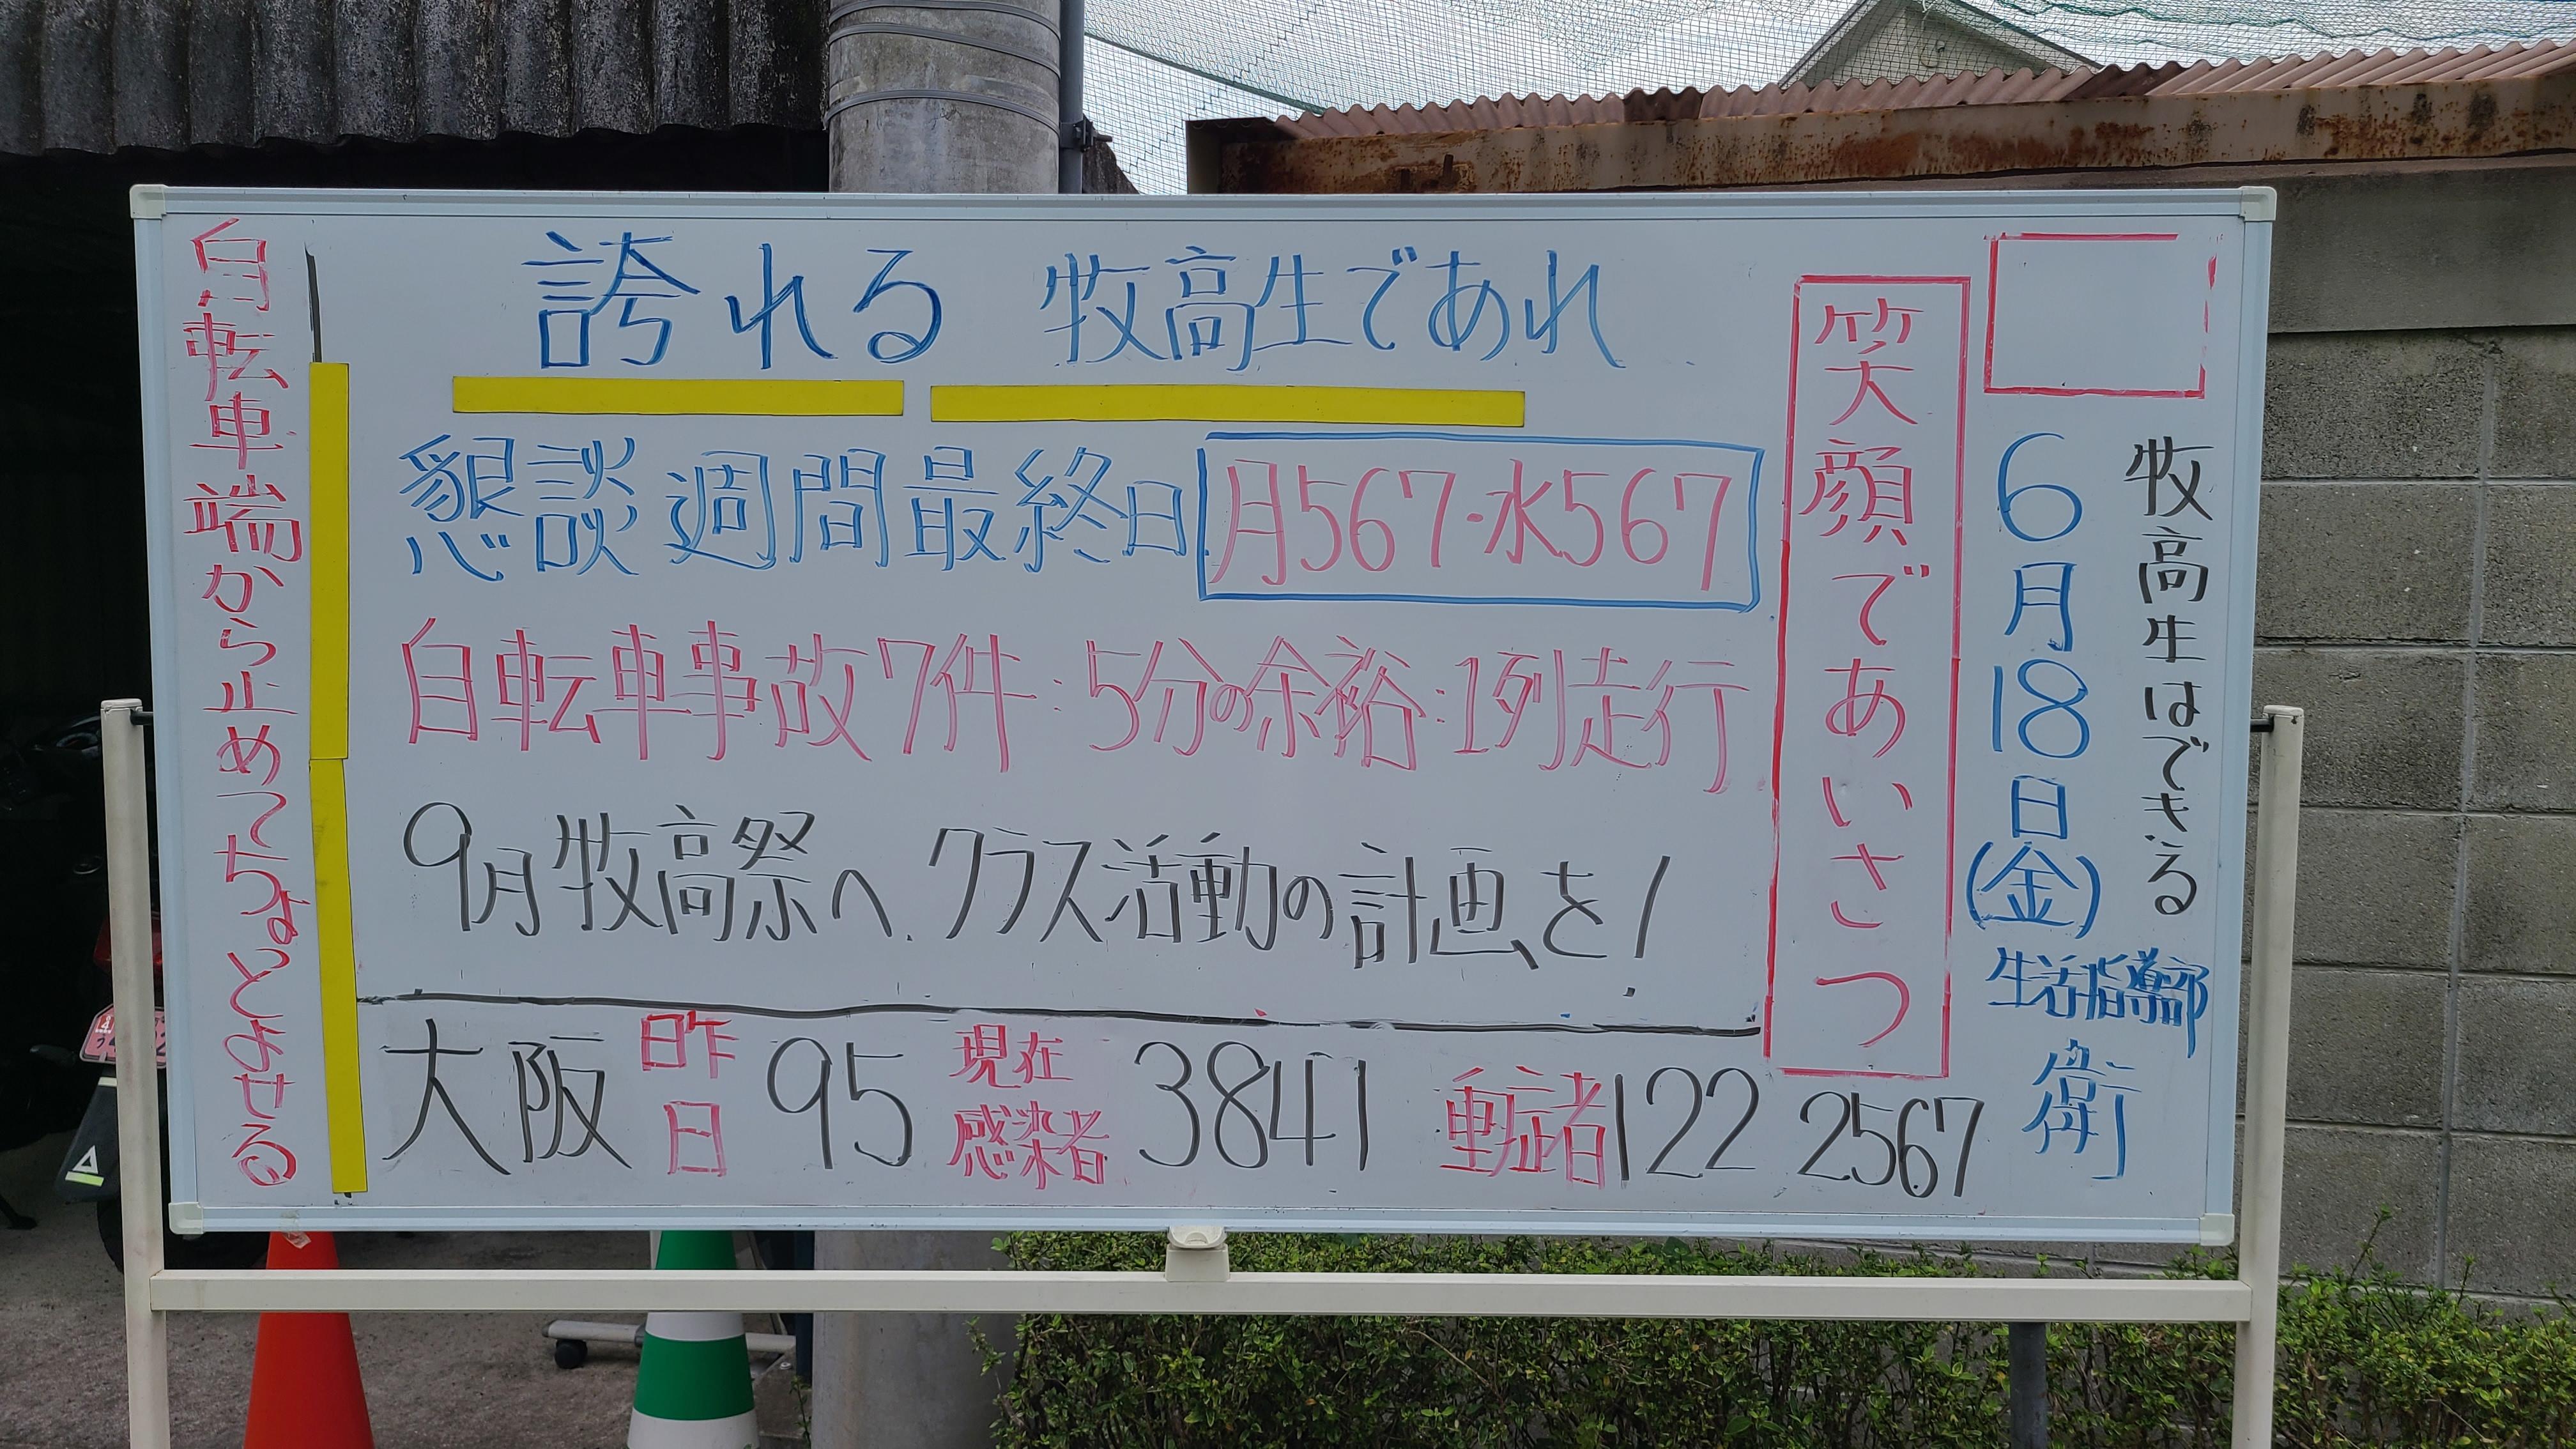 牧高生はできる
6月18日(金)
生活指導部
衛
笑顔であいさつ
誇れる 牧高生であれ
懇談週間最終日 月567・水567
自転車事故7件:5分の余裕:1列走行
9月牧高祭へ、クラス活動の計画を!
大阪 昨日 95 現在感染者 3841 重症者 122 2567
自転車端から止めてちょっとよせる